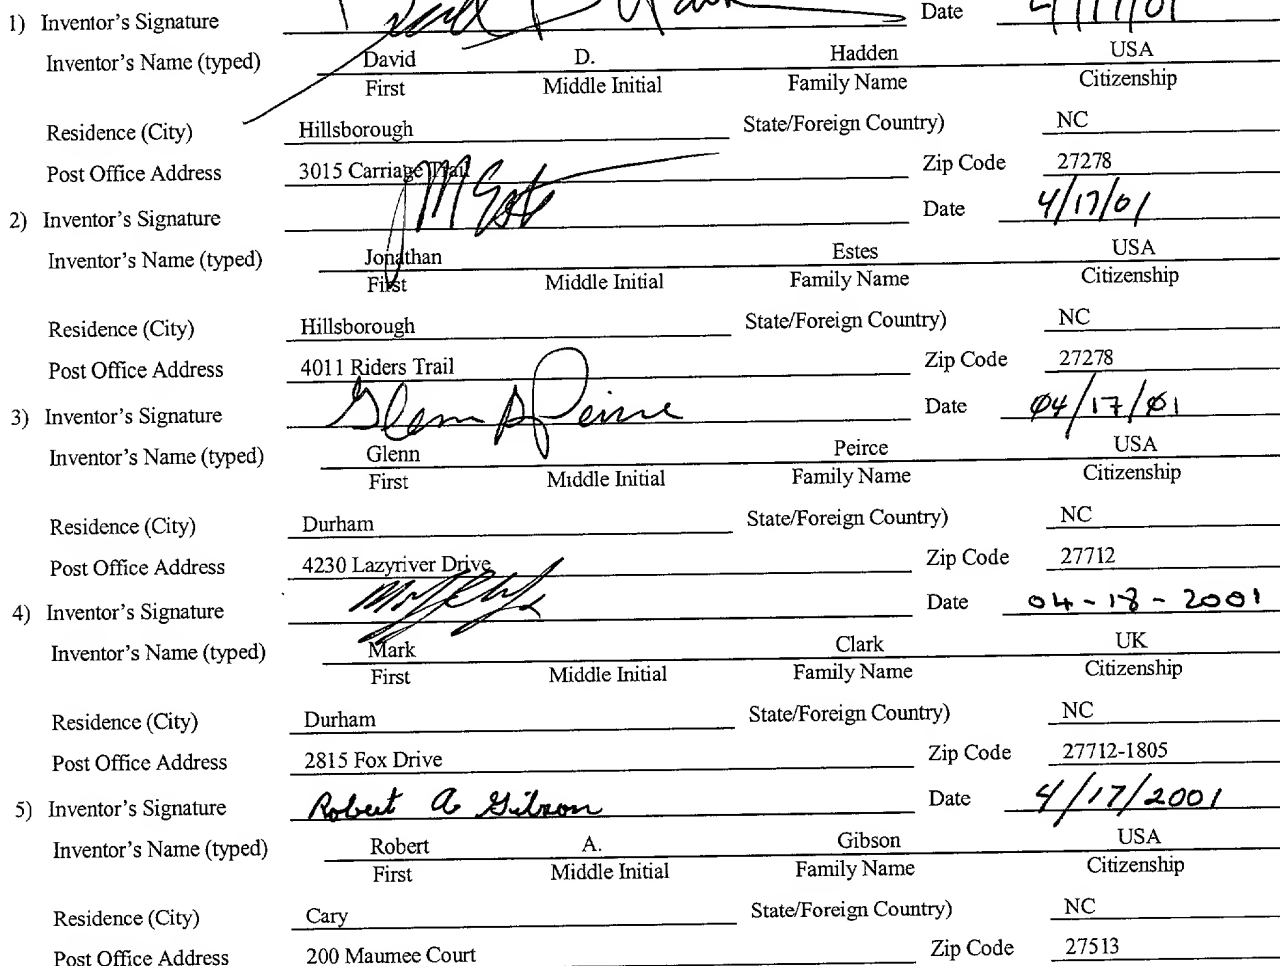 1) Inventor's Signature Date 4/17/01
Inventor's Name (typed) David D. Hadden USA
First Middle Initial Family Name Citizenship
Residence (City) Hillsborough State/Foreign Country) NC
Post Office Address 3015 Carriage Trail Zip Code 27278
2) Inventor's Signature Date 4/17/01
Inventor's Name (typed) Jonathan Estes USA
First Middle Initial Family Name Citizenship
Residence (City) Hillsborough State/Foreign Country) NC
Post Office Address 4011 Riders Trail Zip Code 27278
3) Inventor's Signature Glenn A Peirce Date 04/17/01
Inventor's Name (typed) Glenn Peirce USA
First Middle Initial Family Name Citizenship
Residence (City) Durham State/Foreign Country) NC
Post Office Address 4230 Lazyriver Drive Zip Code 27712
4) Inventor's Signature Date 04-18-2001
Inventor's Name (typed) Mark Clark UK
First Middle Initial Family Name Citizenship
Residence (City) Durham State/Foreign Country) NC
Post Office Address 2815 Fox Drive Zip Code 27712-1805
5) Inventor's Signature Robert A Gibson Date 4/17/2001
Inventor's Name (typed) Robert A. Gibson USA
First Middle Initial Family Name Citizenship
Residence (City) Cary State/Foreign Country) NC
Post Office Address 200 Maumee Court Zip Code 27513